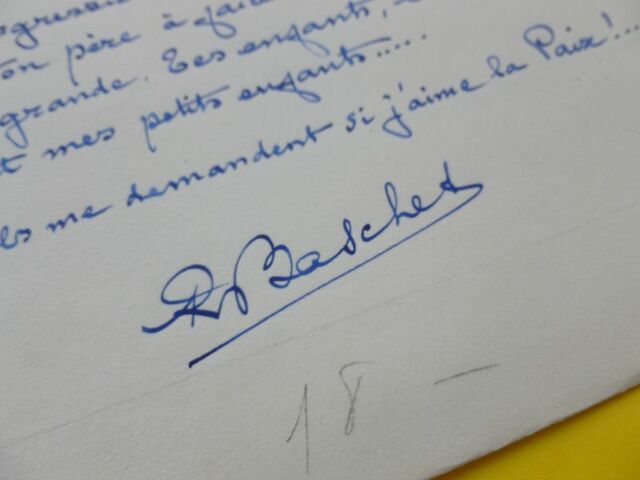 on père à
grande. Tes enfants,
t mes petits enfants.....
ls me demandent si j'aime la Paix!...
R Baschet
18 -